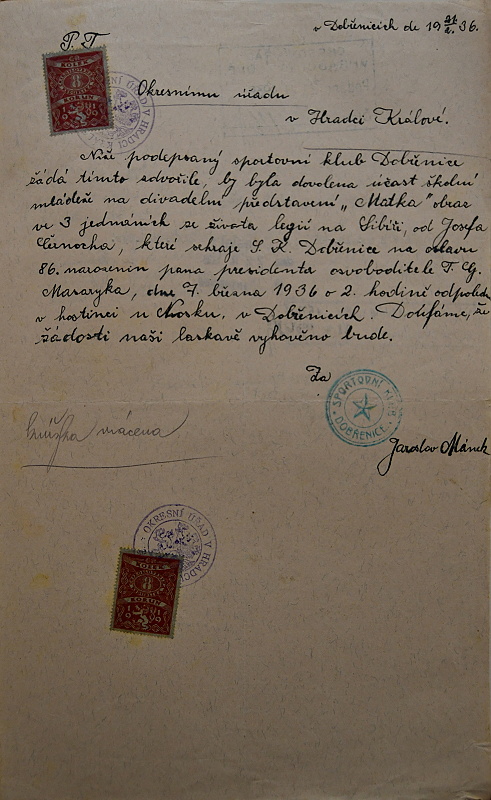 v Dobřenicích dne 19 21/2. 36.
P. T.
Okresnímu úřadu
v Hradci Králové.
Níže podepsaný sportovní klub Dobřenice
žádá tímto zdvořile, by byla dovolena účast školní
mládeže na divadelní představení „Matka" obraz
ve 3 jednáních ze života legií na Sibiři, od Josefa
které sehraje S. K. Dobřenice na oslavu
86. narozenin pana presidenta osvoboditele T. G.
Masaryka, dne 7. března 1936 o 2. hodině odpoledne
v hostinci u Nosku, v Dobřenicích. Doufáme, že
žádosti naší laskavě vyhověno bude.
Za
SPORTOVNÍ KLUB
DOBŘENICE
Jaroslav Mánek
knížka vrácena
OKRESNÍ ÚŘAD V HRADCI
KOLEK
8
KORUN
OKRESNÍ ÚŘAD V HRADCI
KOLEK
8
KORUN